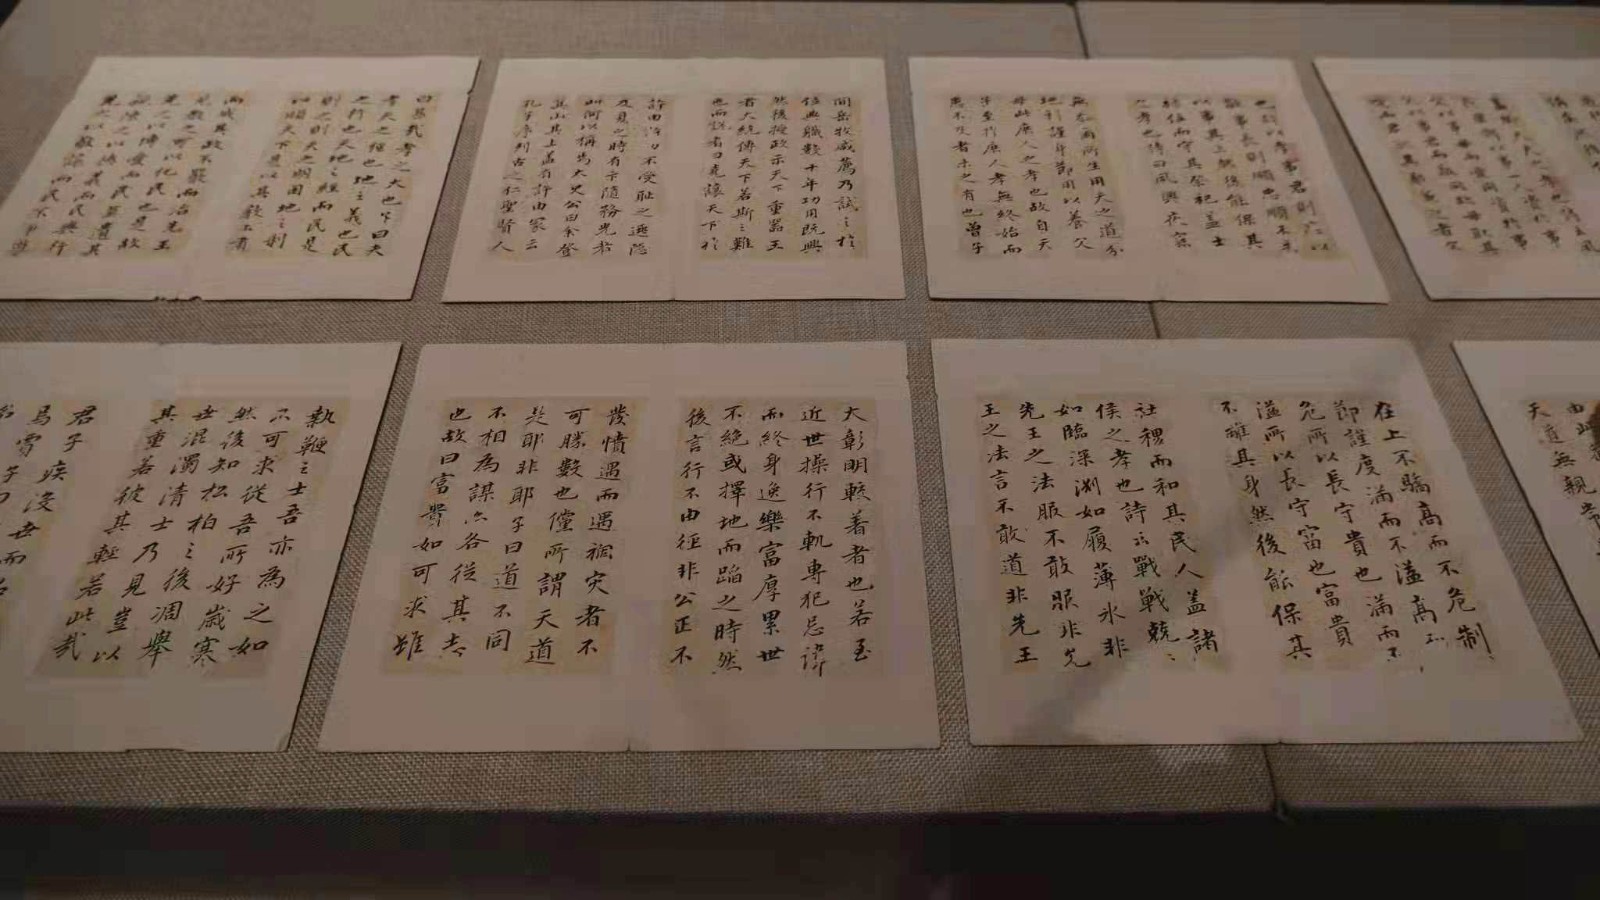 敬事長則順忠順不失
以事其上然後能保其
祿位而守其祭祀蓋士
之孝也詩曰夙興夜寐
無忝爾所生用天之道分
地利謹身節用以養父
母此庶人之孝也故自天
子至於庶人孝無終始而
患不及者未之有也曾子
間岳牧咸薦乃試之於
位典職數十年功用既興
然後授政示天下重器王
者大統傳天下若斯之難
也而說者曰堯讓天下於
許由許由不受恥之逃隱
及夏之時有卞隨務光者
此何以稱焉太史公曰余登
箕山其上蓋有許由冢云
孔子序列古之仁聖賢人
曰甚哉孝之大也子曰夫
孝天之經也地之義也民
之行也天地之經而民是
則之則天之明因地之利
以順天下是以其教不肅
而成其政不嚴而治先王
見教之可以化民也是故
先之以博愛而民莫遺其
親陳之以德義而民興行
先之以敬讓而民不爭導
由此
天道無親常
在上不驕高而不危制
節謹度滿而不溢高而
危所以長守貴也滿而不
溢所以長守富也富貴
不離其身然後能保其
社稷而和其民人蓋諸
侯之孝也詩云戰戰兢〻
如臨深淵如履薄氷非
先王之法服不敢服非先
王之法言不敢道非先王
大彰明較著者也若至
近世操行不軌專犯忌諱
而終身逸樂富厚累世
不絕或擇地而蹈之時然
後言行不由徑非公正不
發憤遇而遇禍灾者不
可勝數也儻所謂天道
是耶非耶子曰道不同
不相為謀亦各從其志
也故曰富貴如可求雖
執鞭之士吾亦為之如
不可求從吾所好歲寒
然後知松柏之後凋舉
世混濁清士乃見豈以
其重若彼其輕若此哉
君子疾沒世而名